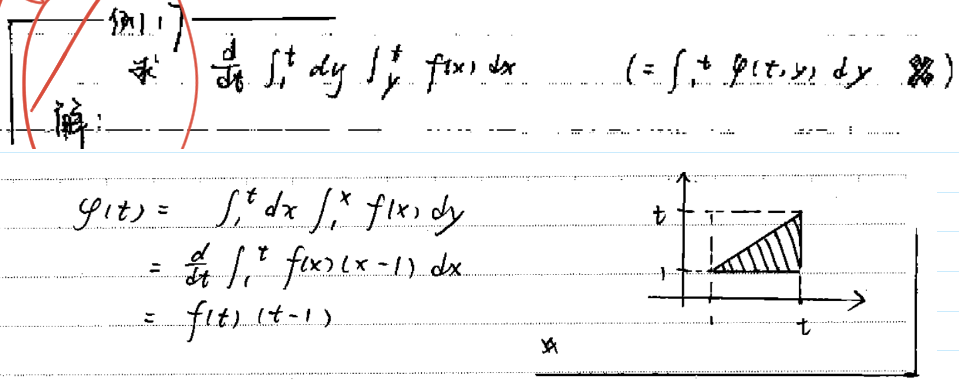 例1:
求 d/dt ∫₁ᵗ dy ∫_yᵗ f(x) dx (= ∫₁ᵗ φ(t,y) dy )
解:
φ(t) = ∫₁ᵗ dx ∫₁ˣ f(x) dy
= d/dt ∫₁ᵗ f(x)(x-1) dx
= f(t) (t-1)
t
1
1 t